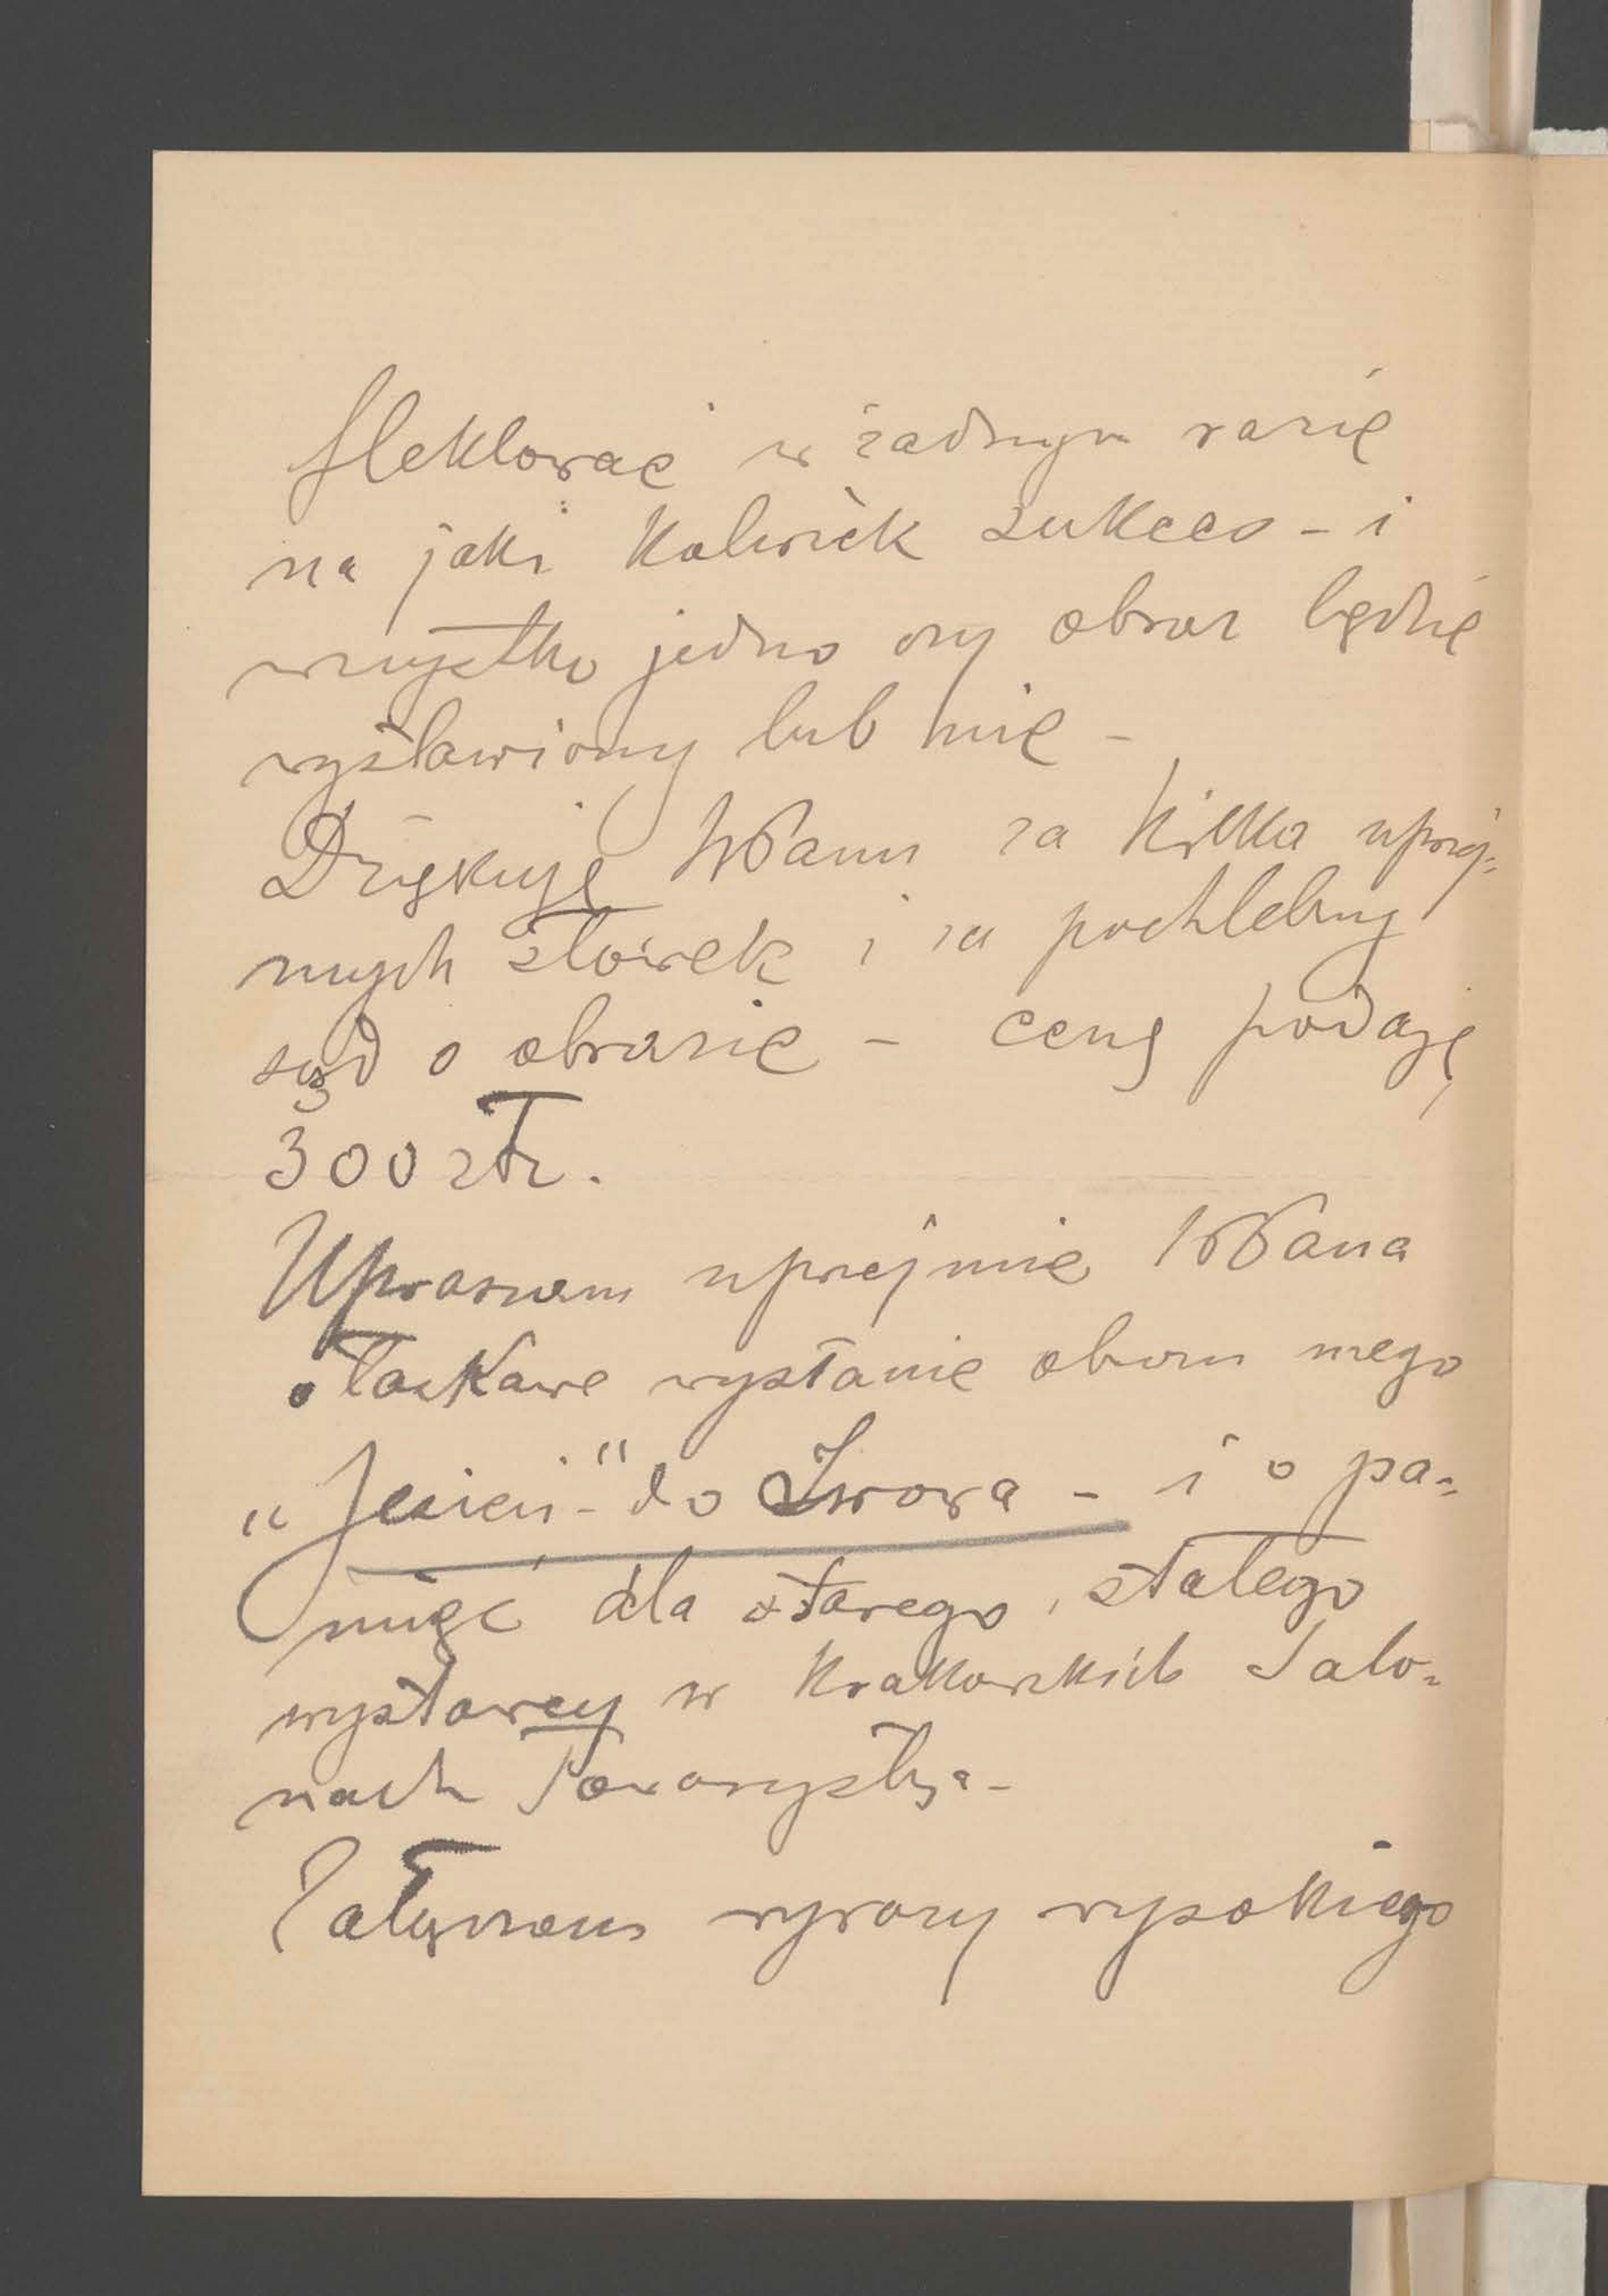 flektować w żadnym razie
na jaki kolwiek sukces – i
wszystko jedno czy obraz będzie
wystawiony lub nie –
Dziękuję WPanu za kilka uprzej=
mych słówek i za pochlebny
sąd o obrazie – cenę podaję,
300 złr.
Upraszam uprzejmie WPana
o łaskawe wysłanie obrazu mego
„Jesień" do Lwowa – i o pa=
mięć dla starego, stałego
wystawcy w Krakowskich Salo=
nach Towarzystwa –
Załączam wyrazy wysokiego